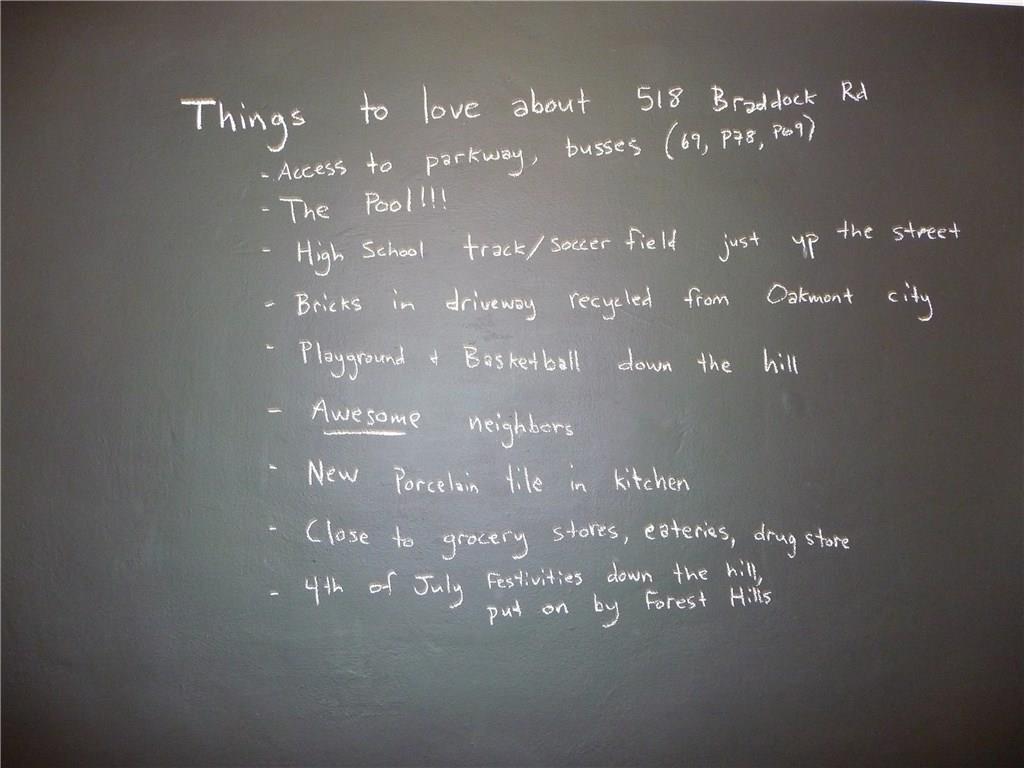 Things to love about 518 Braddock Rd
- Access to parkway, busses (69, P78, P69)
- The Pool!!!
- High School track/soccer field just up the street
- Bricks in driveway recycled from Oakmont city
- Playground + Basketball down the hill
- Awesome neighbors
- New Porcelain tile in kitchen
- Close to grocery stores, eateries, drug store
- 4th of July Festivities down the hill,
put on by Forest Hills